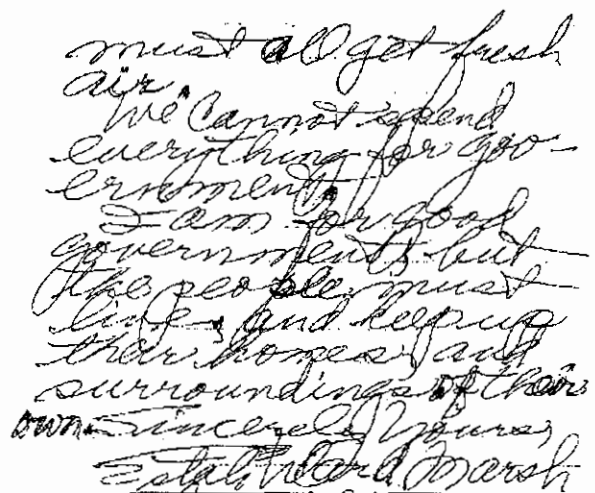 must all get fresh
air.
We cannot spend
everything for gov-
ernment.
I am for good
government, but
the people must
live, and keep up
their homes and
surroundings of their
own. Sincerely Yours,
Ward Marsh